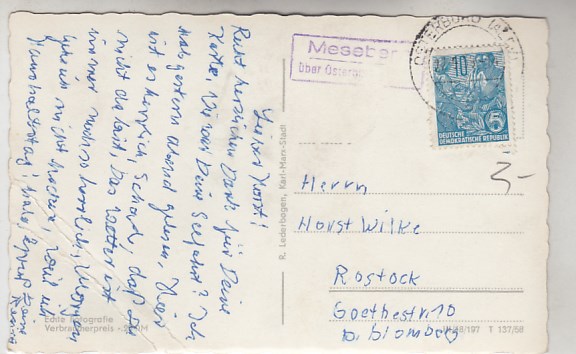 Lieber Horst!
Recht herzlichen Dank für Deine
Karte. Wie war Deine Seefahrt? Ich
habe gestern abend gelesen. Hier
ist es herrlich. Schade, daß Du
nicht da bist. Das Wetter ist
immer noch so herrlich. Morgen
gehe ich nicht
Haushaltstag!
Meseber
über Osterb
OSTERBURG
10
5
DEUTSCHE
DEMOKRATISCHE REPUBLIK
3-
Herrn
Horst Wilke
Rostock
Goethestr. 10
b. Blomberg
R. Lederbogen, Karl-Marx-Stadt
Echte Fotografie
Verbraucherpreis
8/197 T 137/58